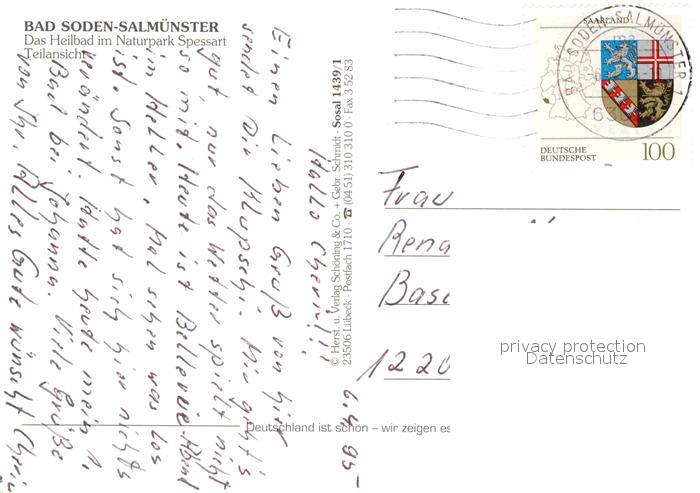 BAD SODEN-SALMÜNSTER
Das Heilbad im Naturpark Spessart
Teilansicht
Hallo Cherin!!
6.4.95
Einen lieben Gruß von hier
sendet Dir Mupschi. Mir geht's
gut, nur das Wetter spielt nicht
so mit. Heute ist Bellevue-Abend
im Keller, mal sehen was los
ist. Sonst hat sich hier nichts
verändert. Hatte heute mein 1.
Bad bei Johanna. Viele Grüße
von Ihr. Alles Gute wünscht
© Herst. u. Verlag Schöning & Co. + Gebr. Schmidt · Sosal 1439/1
23506 Lübeck · Postfach 1710 · ☎ (04 51) 310 310 0 · Fax 3 52 83
SAARLAND
BAD SODEN-SALMÜNSTER 1
DEUTSCHE
BUNDESPOST
100
Frau
Rena
Base
1220
privacy protection
Datenschutz
Deutschland ist schön – wir zeigen es